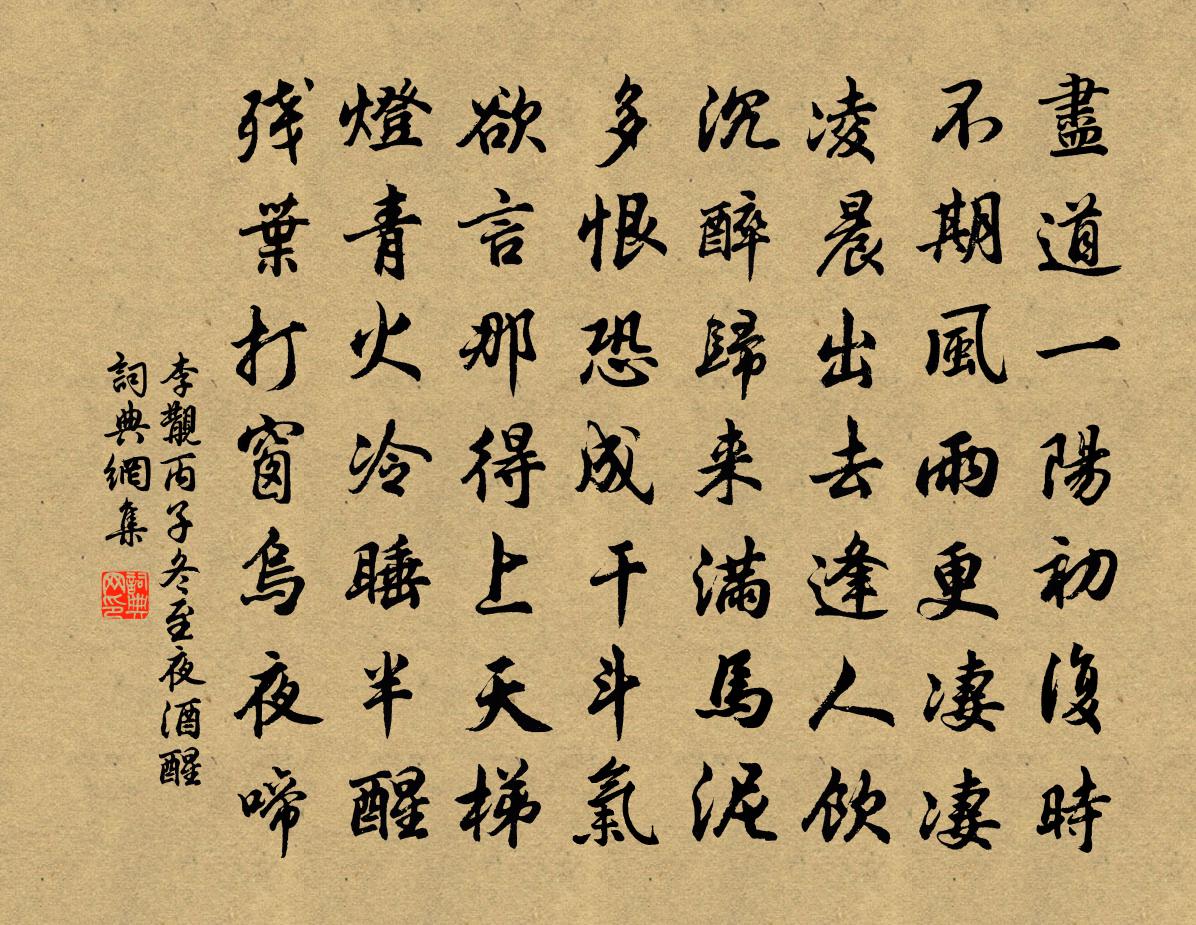 盡道一陽初復時
不期風雨更凄凄
凌晨出去逢人飲
沉醉歸来滿馬泥
多恨恐成干斗氣
欲言那得上天梯
燈青火冷睡半醒
残葉打窗烏夜啼
李覯丙子冬至夜酒醒
詞典網集